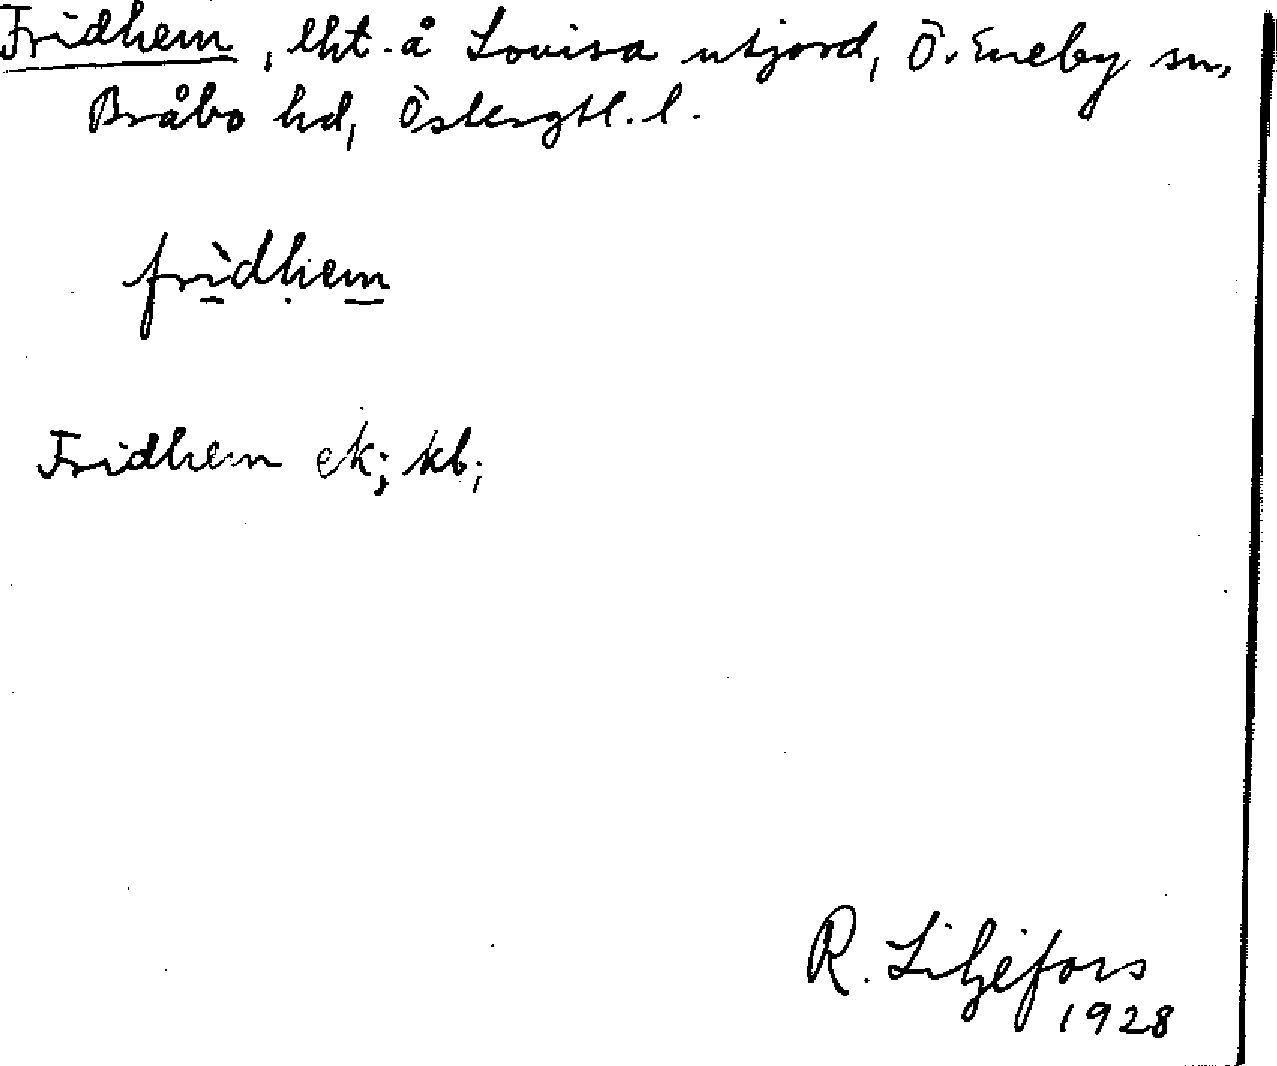 Fridhem, lht. å Lovisa utjord, Ö. Eneby sn,
Bråbo hd, Östergtl. l.
frìdhem
Fridhem ek; kb;
R. Liljefors
1928